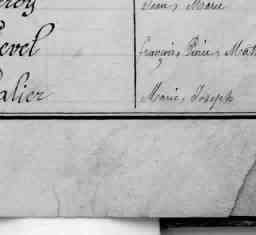 Jean, Marie
evel François, Pierre, Mat
alier Marie, Joseph